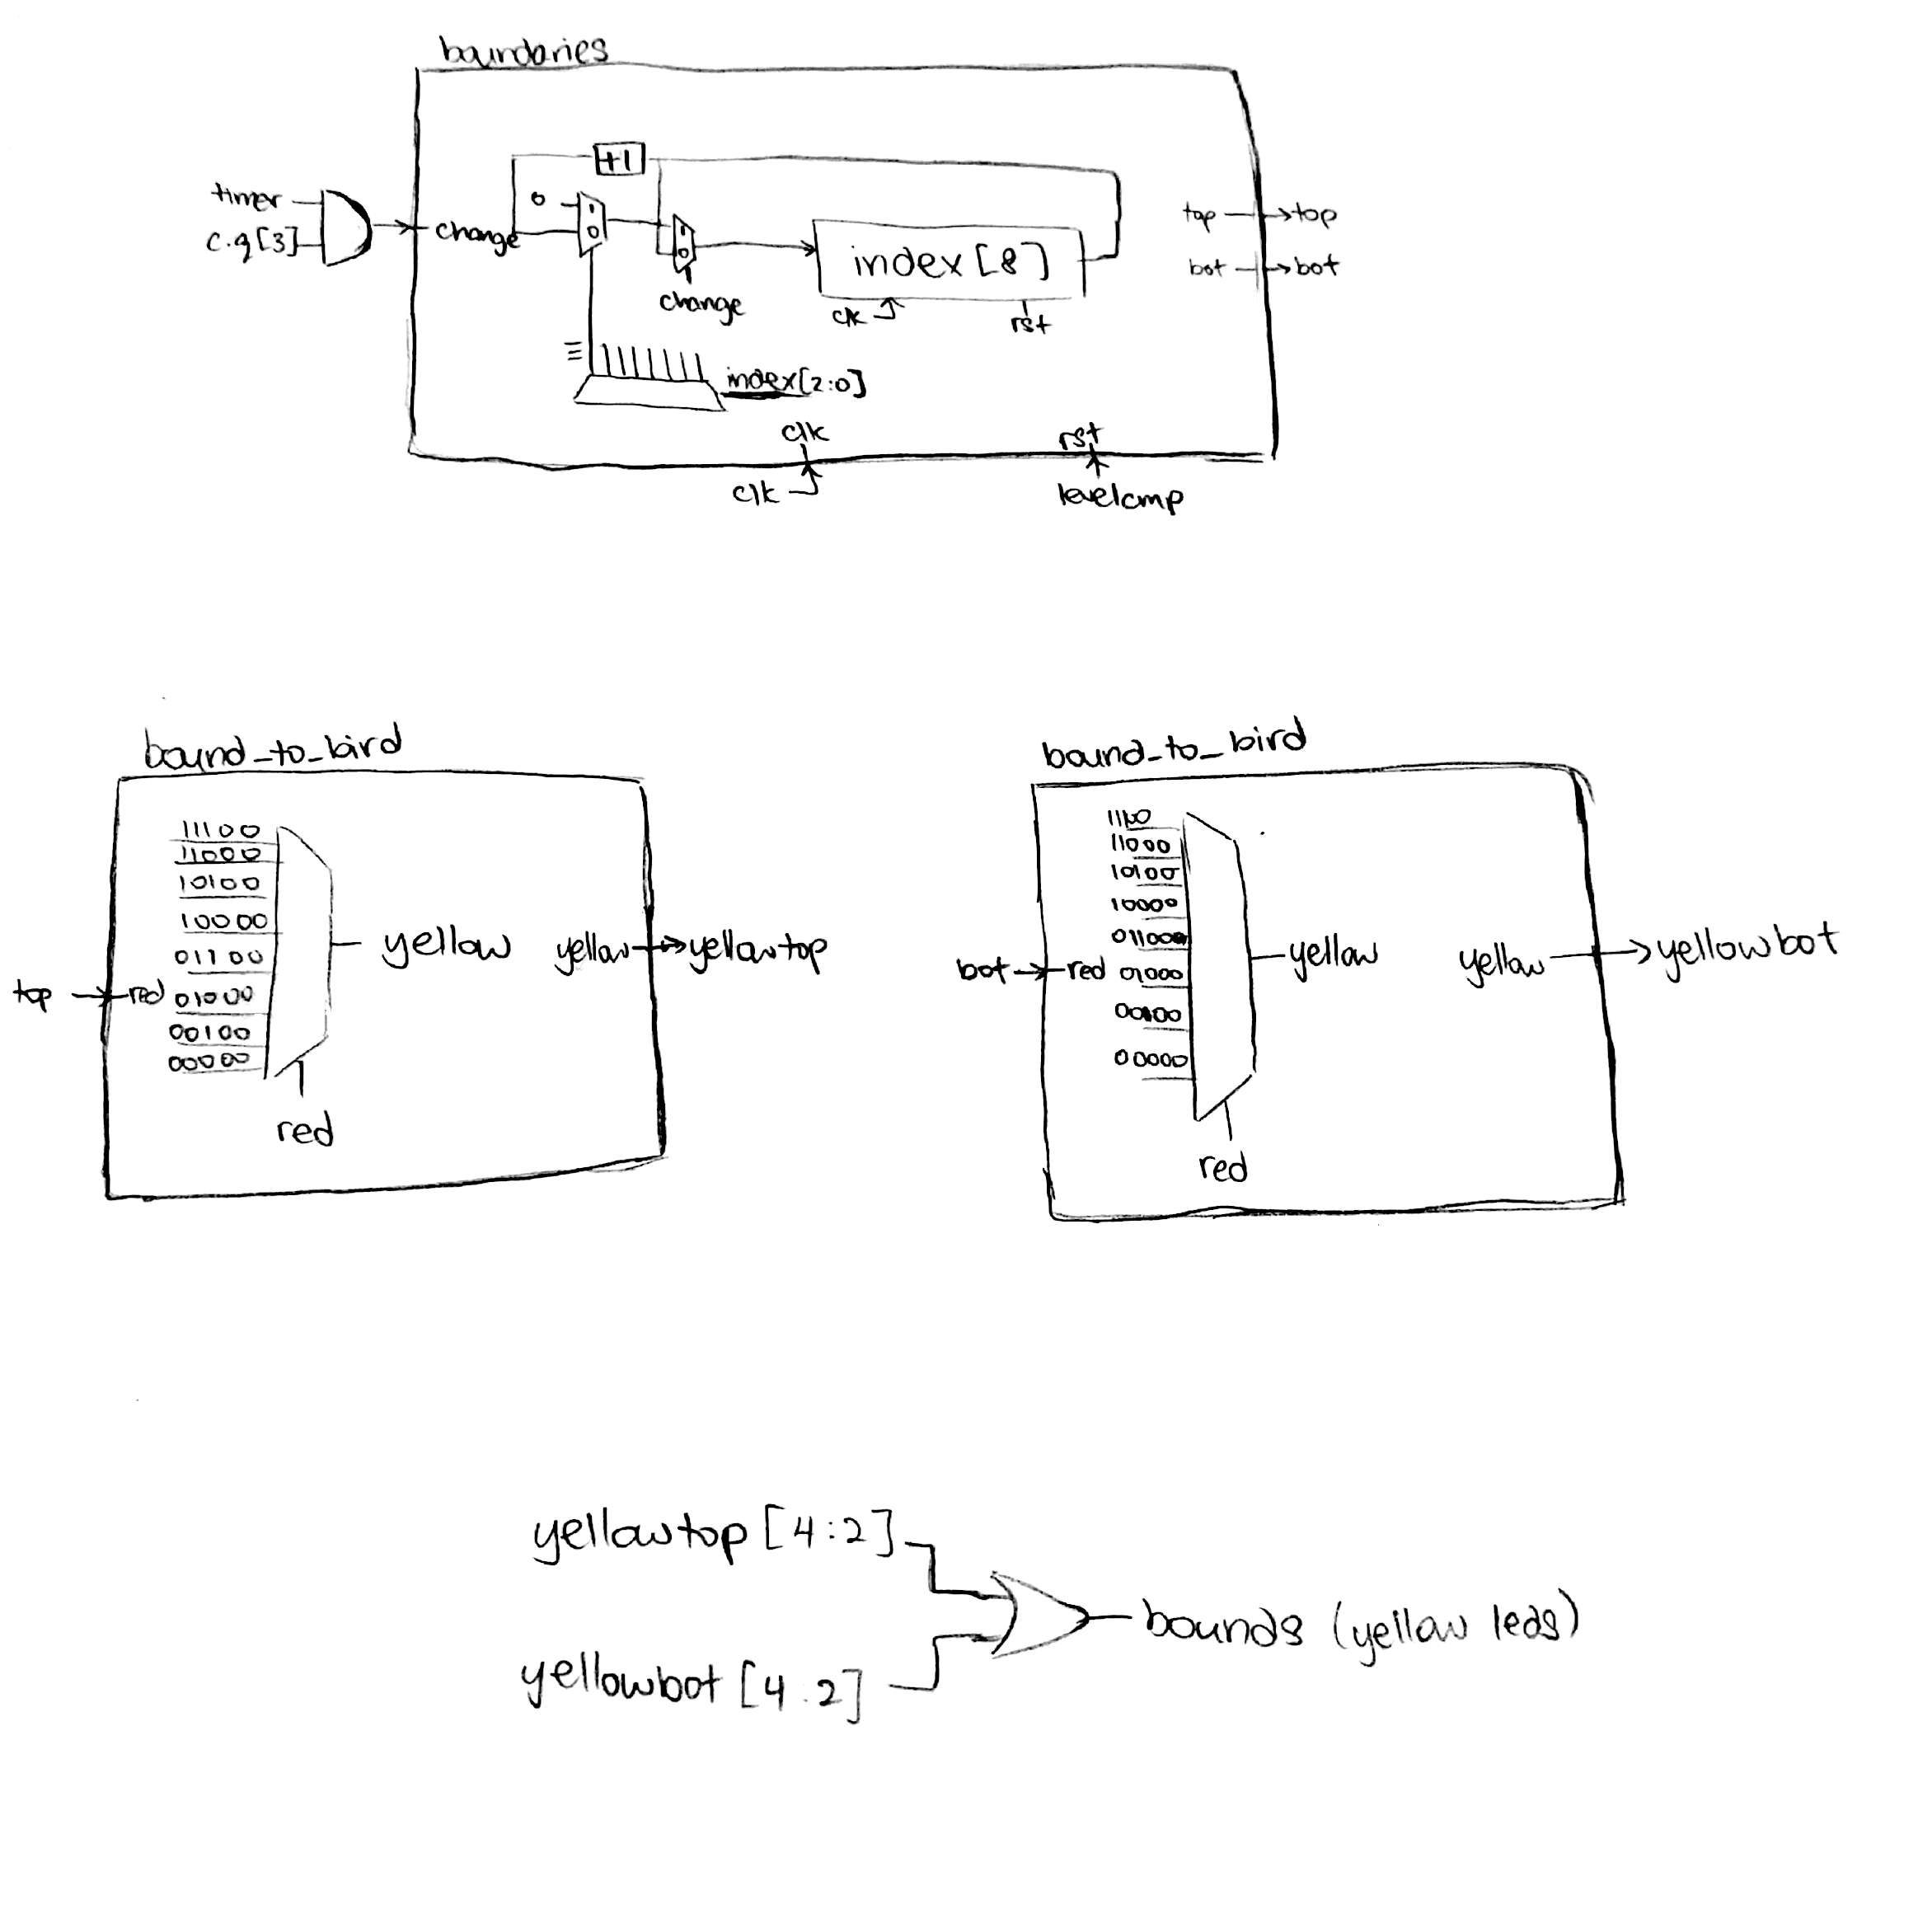 boundaries
+1
timer
c.q[3]
change
0
1
0
1
0
change
index[8]
clk
rst
top
top
bot
bot
index[2:0]
clk
rst
clk
levelcmp
bound_to_bird
11100
11000
10100
10000
01100
01000
00100
00000
top
red
yellow
yellow
yellowtop
red
bound_to_bird
11000
10100
10000
01000
00100
00000
bot
red
yellow
yellow
yellowbot
red
yellowtop [4:2]
yellowbot [4:2]
bounds (yellow leds)